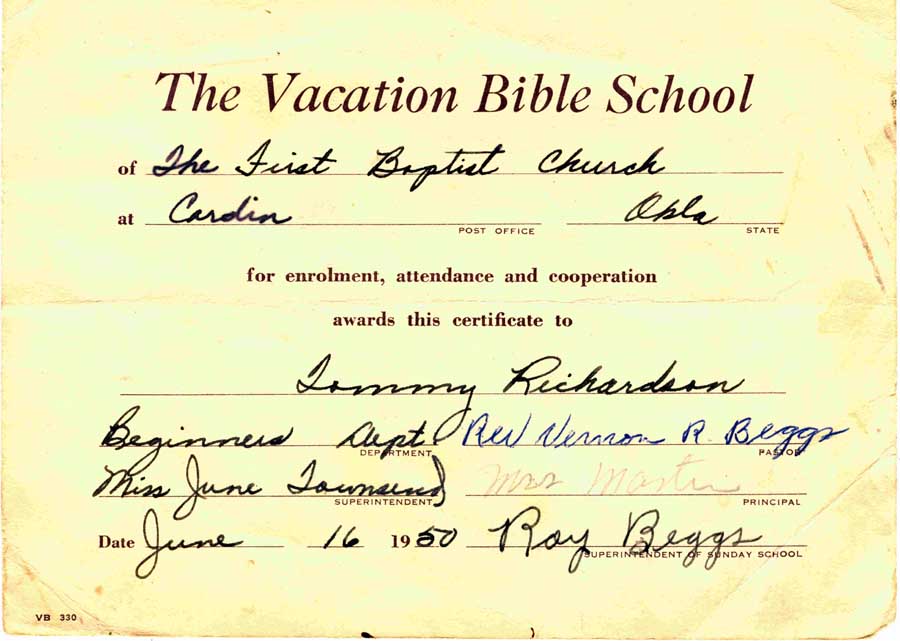 The Vacation Bible School
of The First Baptist Church
at Cardin Okla
POST OFFICE STATE
for enrolment, attendance and cooperation
awards this certificate to
Tommy Richardson
Beginners Dept. Rev Vernon R. Beggs
DEPARTMENT PASTOR
Miss June Townsend Mrs Martin
SUPERINTENDENT PRINCIPAL
Date June 16 1950 Roy Beggs
SUPERINTENDENT OF SUNDAY SCHOOL
VB 330